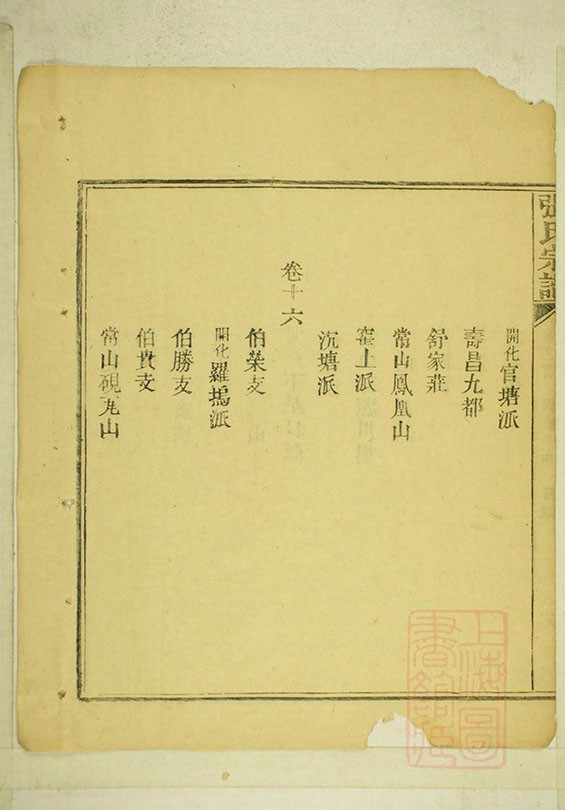 張氏宗譜
開化官塘派
壽昌九都
舒家莊
常山鳳凰山
窰上派
沉塘派
卷十六
伯榮支
開化羅塢派
伯勝支
伯貴支
常山硯瓦山
上海圖
書館藏